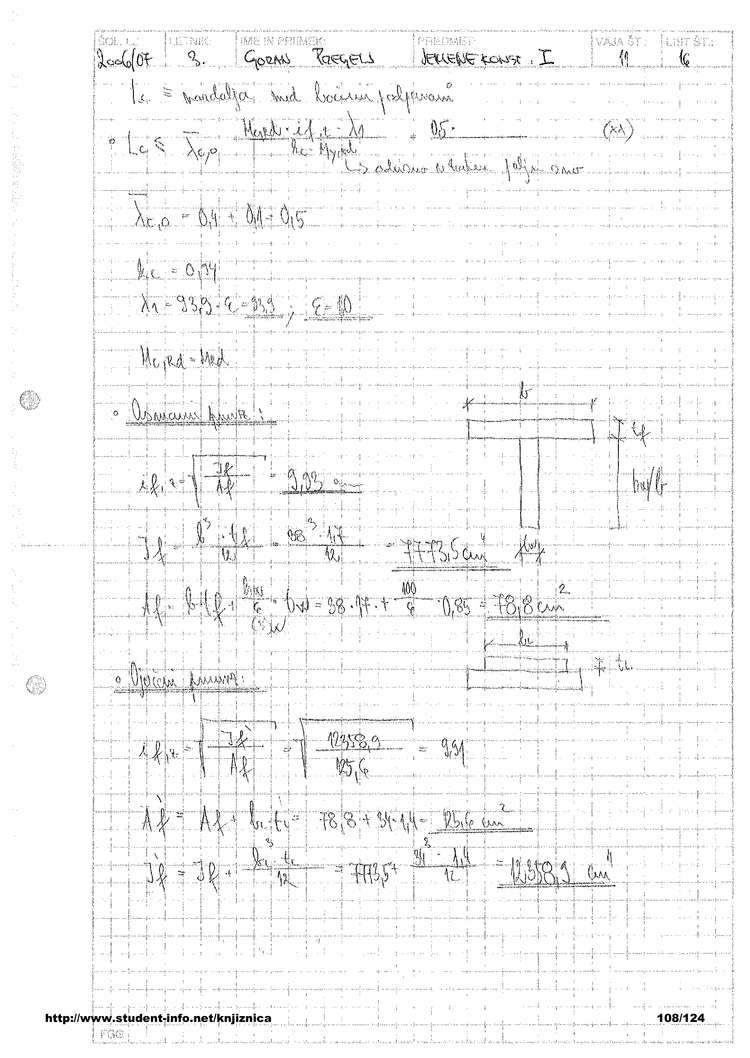 ŠOL. L.: LETNIK: IME IN PRIIMEK: PREDMET: VAJA ŠT.: LIST ŠT.:
2006/07 3. GORAN JEKLENE KONST. I 11 16
Lc ≡ med bočnimi podporami
• Lc ≤ λ̄c,0 Mc,Rd · if,z · λ1 / kc · My,Ed = 0,5 · (**)
↳ odvisno v katerem polju smo
λ̄c,0 = 0,4 + 0,1 = 0,5
kc = 0,94
λ1 = 93,9 · ε = 93,9 ; ε = 1,0
Mc,Rd = MRd
• Osnovni prerez :
b
tf
if,z = √(If / Af) = 9,93 cm
hw/6
If = b³ · tf / 12 = 38³ · 1,7 / 12 = 7773,5 cm⁴ tw
Af = b · tf + hw/6 · tw = 38 · 1,7 + 100/6 · 0,85 = 78,8 cm²
bL
tL
• Ojačani prerez :
if,z = √(If' / Af') = √(12358,9 / 125,6) = 9,91
Af' = Af + bL · tL = 78,8 + 34 · 1,4 = 125,6 cm²
If' = If + bL³ · tL / 12 = 7773,5 + 34³ · 1,4 / 12 = 12358,9 cm⁴
http://www.student-info.net/knjiznica 108/124
FGG